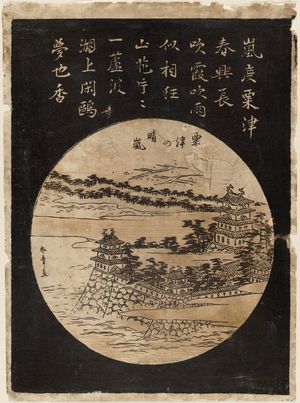 嵐度粟津
春興長
吹霞吹雨
似相狂
山花片々
一蘆波
湖上閑鷗
夢也香
粟津の
晴嵐